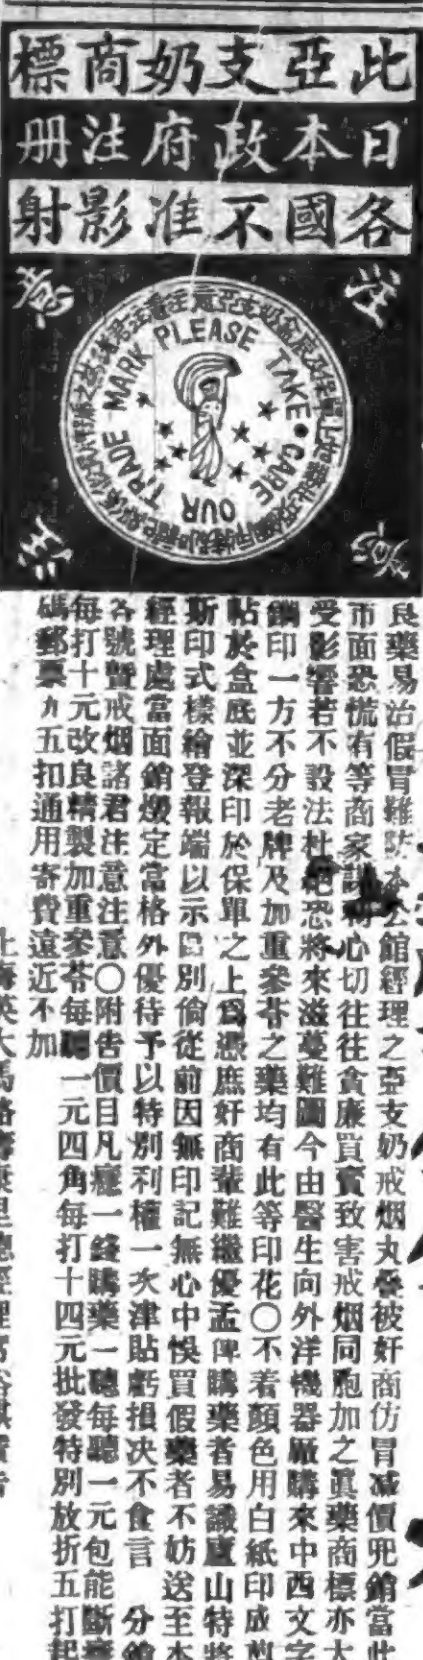 此亞支奶商標
日本政府注册
各國不准影射
PLEASE TAKE • CARE OUR TRADE MARK
良藥易治假冒難防本公館經理之亞支奶戒烟丸叠被奸商仿冒减價兜銷當此
市面恐慌有等商家心切往往貪廉買賣致害戒烟同胞加之眞藥商標亦大
受影響若不設法杜絕恐將來滋蔓難圖今由醫生向外洋機器廠購來中西文字
鋼印一方不分老牌及加重參苓之藥均有此等印花〇不着顔色用白紙印成
帖於盒底並深印於保單之上爲憑庶奸商輩難繼優孟俾購藥者易識廬山特將
斯印式樣繪登報端以示區別倘從前因無印記無心中悞買假藥者不妨送至本
經理處當面銷燬定當格外優待予以特別利權一次津貼虧損决不食言 分銷
各號曁戒烟諸君注意注意〇附告價目凡癮一錢購藥一聽每聽一元包能斷癮
每打十元改良精製加重參苓每聽一元四角每打十四元批發特別放折五打起
碼郵票九五扣通用寄費遠近不加
上海英大馬路